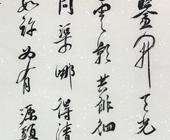 鑒開天光
雲影共徘徊
問渠哪得清
如許為有源頭